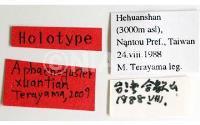 Holotype
Aphaenogaster
xuantian
Terayama, 2009
Hehuanshan
(3000m asl),
Nantou Pref., Taiwan
24.viii.1988
M. Terayama leg.
台湾 合歓山
1988 VIII.